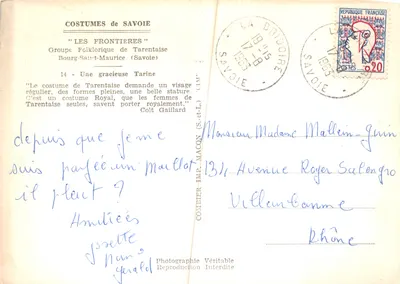 COSTUMES de SAVOIE
"LES FRONTIERES"
Groupe Folklorique de Tarentaise
Bourg-Saint-Maurice (Savoie)
14 - Une gracieuse Tarine
"Le costume de Tarentaise demande un visage
régulier, des formes pleines, une belle stature
C'est un costume Royal, que les femmes de
Tarentaise seules, savent porter royalement."
Coït Gaillard
depuis que je me
suis un maillot
il plaît ?
Amitiés
Josette
Gérald
Photographie Véritable
Reproduction Interdite
COMBIER IMP. MACON (S.-et-L.)
SAVOIE
18 H 15
17-8
1963
REPUBLIQUE FRANÇAISE
POSTES
0,20
SAVOIE
Monsieur Madame Mallein-Guin
134 Avenue Roger Salengro
Villeurbanne
Rhône